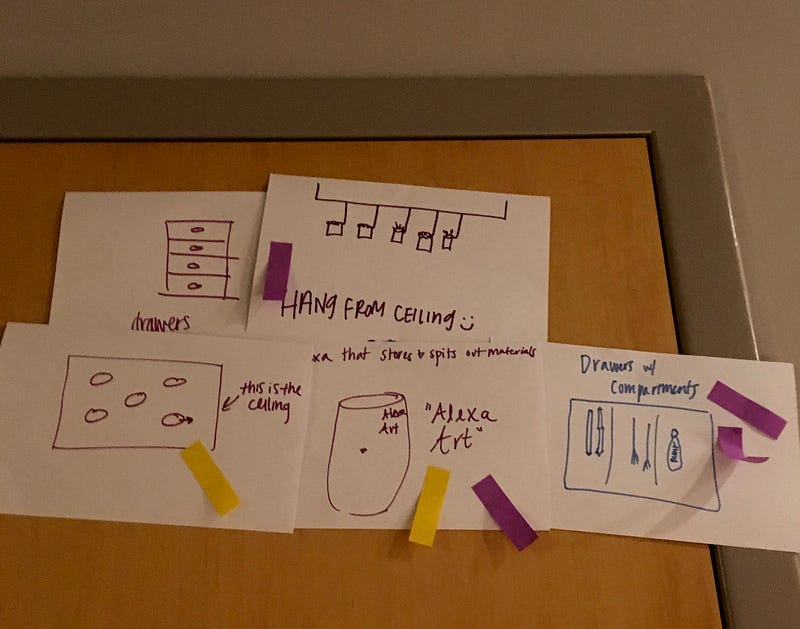 drawers
HANG FROM CEILING
this is the
ceiling
xa that stores & spits out materials
Alexa
Art
"Alexa
Art"
Drawers w/
Compartments